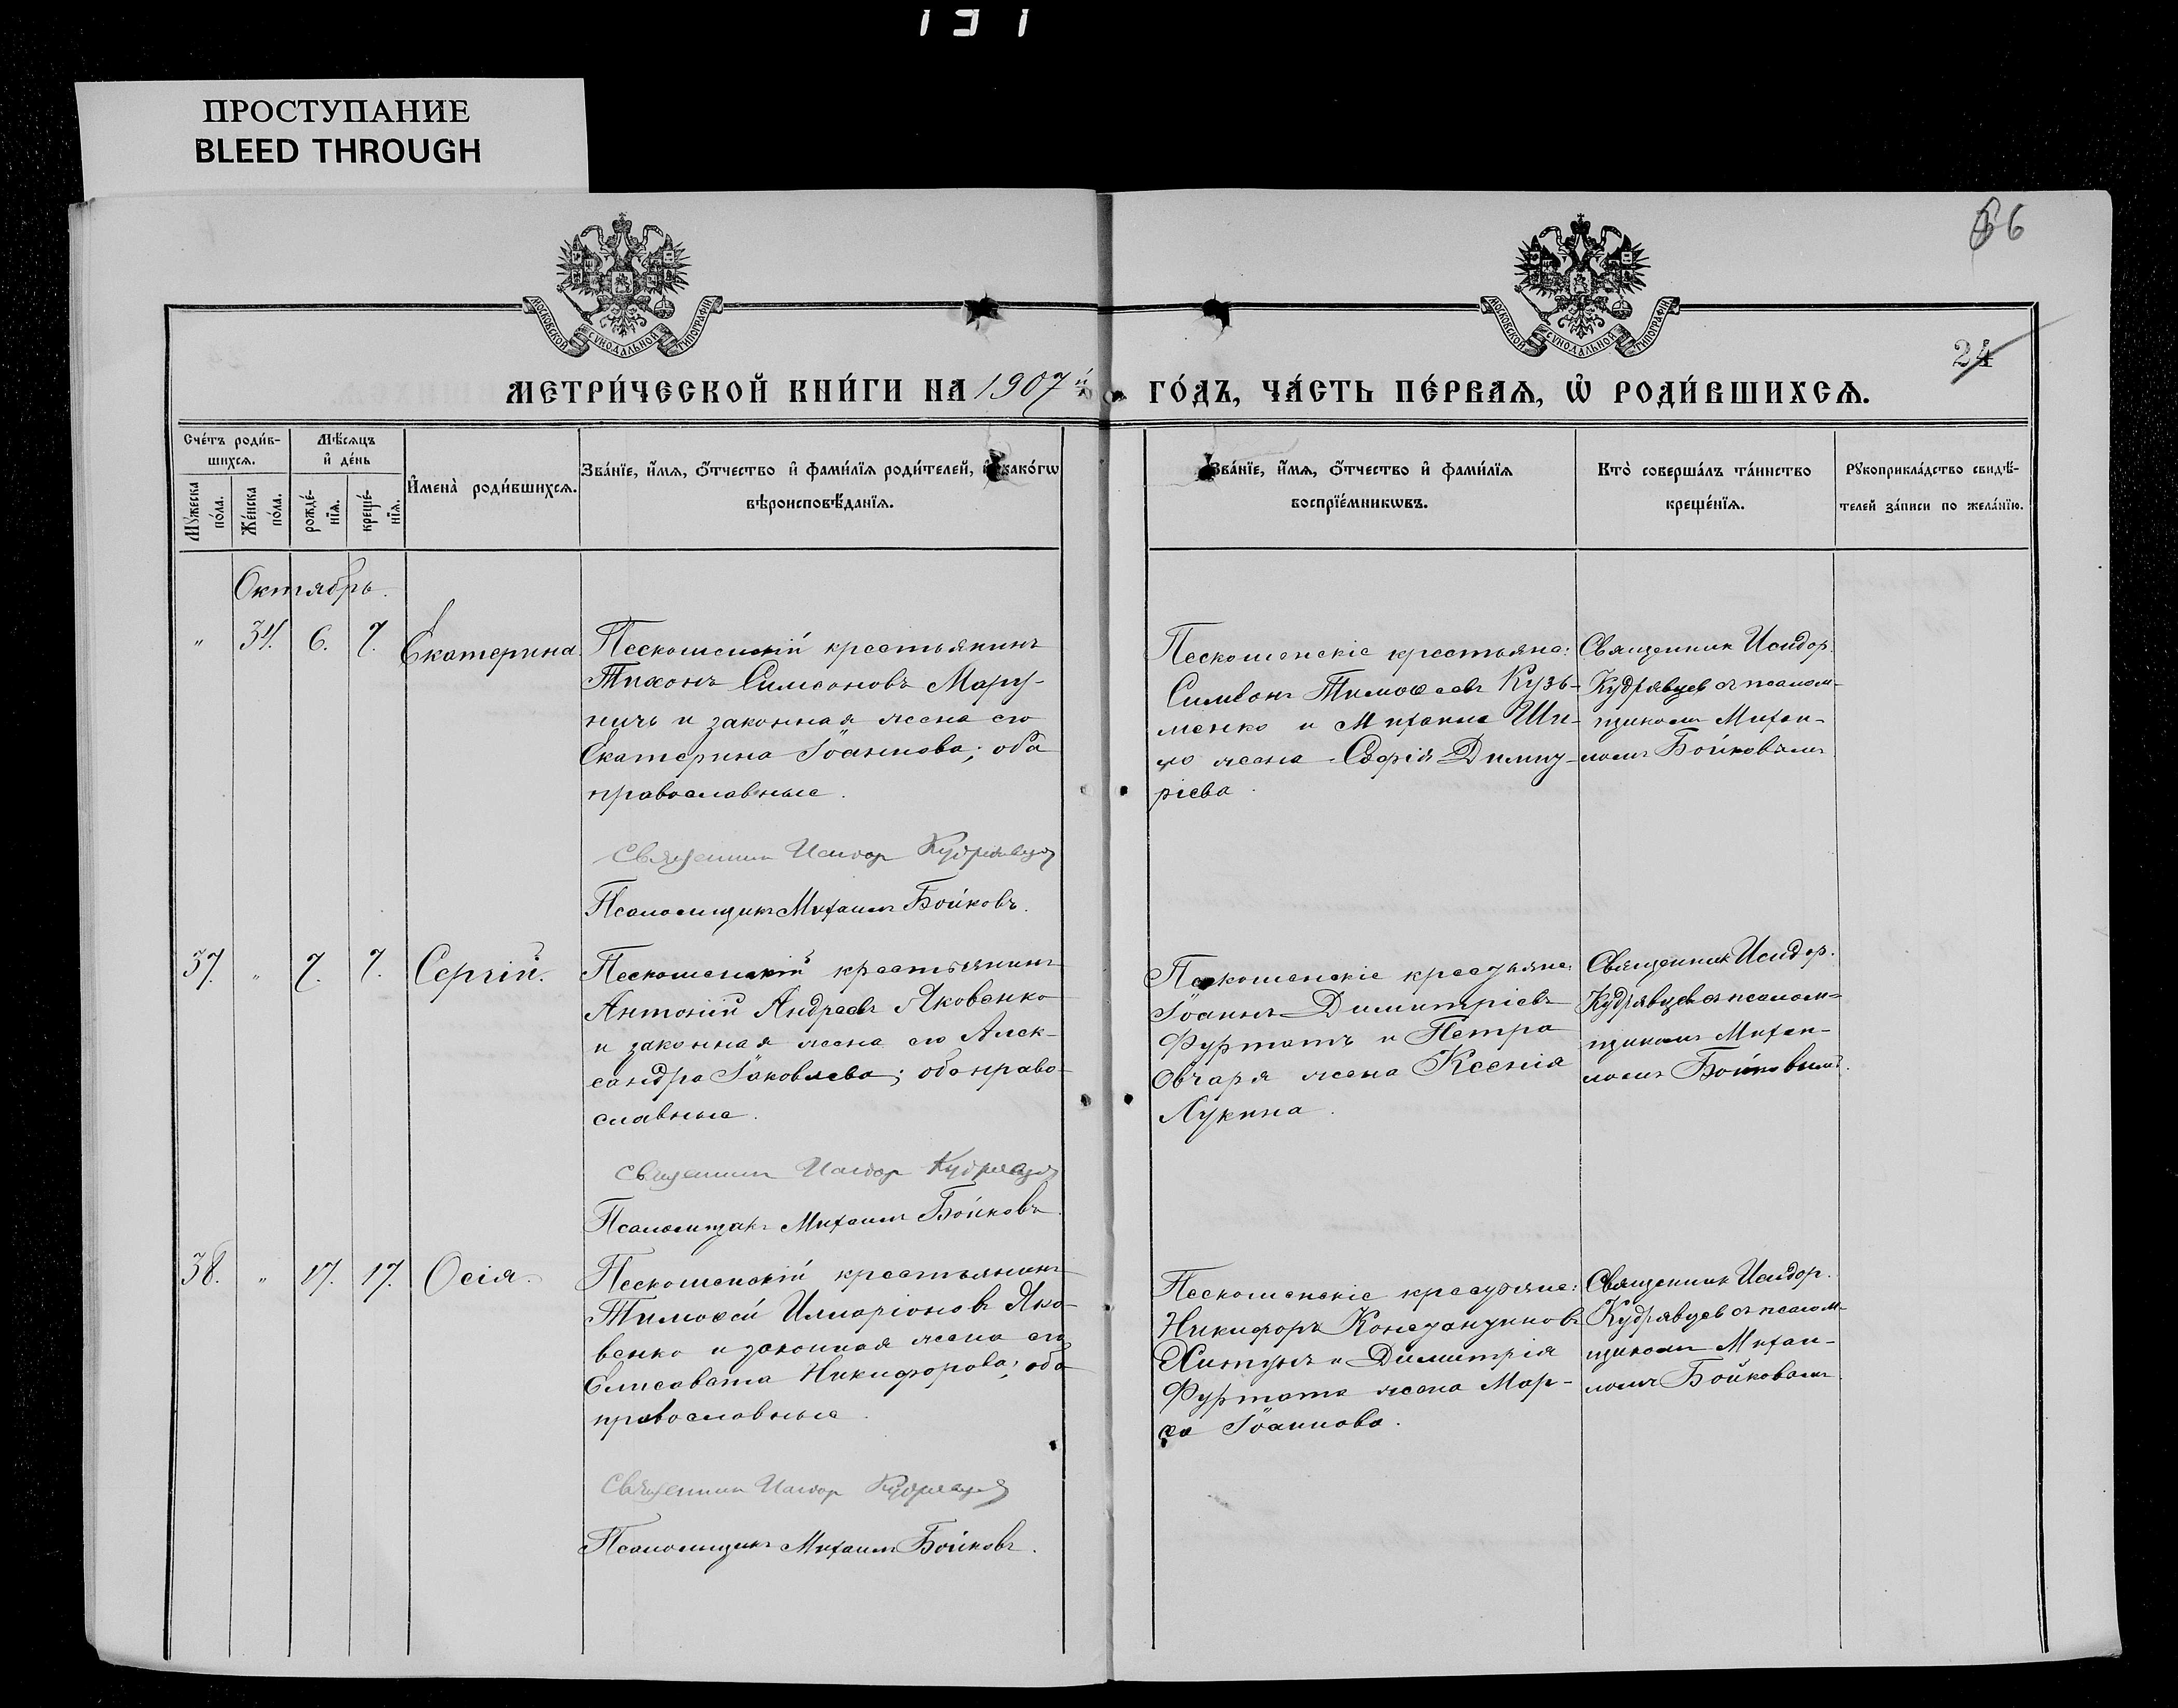 131
ПРОСТУПАНИЕ
BLEED THROUGH
66
МОСКОВСКОЙ СѴНОДАЛЬНОЙ ТИПОГРАФІИ
МОСКОВСКОЙ СѴНОДАЛЬНОЙ ТИПОГРАФІИ
24
МЕТРИ́ЧЕСКОЙ КНИ́ГИ НА 1907 й
ГО́ДЪ, ЧА́СТЬ ПЕ́РВАѦ, Ѡ҆ РОДИ́ВШИХСѦ.
Сче́тъ роди́в-
шихсѧ.
Мꙋ́жеска
по́ла.
Же́нска
по́ла.
Мѣ́сѧцъ
и҆ де́нь
рожде́-
нїѧ.
креще́-
нїѧ.
И҆мена̀ роди́вшихсѧ.
Зва́нїе, и҆́мѧ, ѻ҆́тчество и҆ фами́лїѧ роди́телей, и҆ како́гѡ
вѣроисповѣ́данїѧ.
Зва́нїе, и҆́мѧ, ѻ҆́тчество и҆ фами́лїѧ
воспрїе́мникѡвъ.
Кто̀ соверша́лъ та́инство
креще́нїѧ.
Рꙋкоприкла́дство свидѣ́-
телей за́писи по жела́нїю.
Октябрь.
" 34. 6. 7. Екатерина.
Пескошенскій крестьянинъ
Тихонъ Симеоновъ Мару-
ничъ и законная жена его
Екатерина Іоаннова; оба
православные.
Священник Исидор Кудрявцев
Псаломщикъ Михаилъ Бойковъ.
Пескошенскіе крестьяне:
Симеонъ Тимоѳеевъ Кузь-
менко и Михаила Ши-
ло жена Софія Димит-
ріева.
Священник Исидор.
Кудрявцев съ псалом-
щикомъ Михаи-
ломъ Бойковымъ
37. " 7. 7. Сергій.
Пескошенскій крестьянинъ
Антоній Андреевъ Яковенко
и законная жена его Алек-
сандра Іаковлева; оба право-
славные.
Священник Исидор Кудрявцев
Псаломщикъ Михаилъ Бойковъ.
Пескошенскіе крестьяне:
Іоаннъ Димитріевъ
Фуртатъ и Петра
Овчаря жена Ксенія
Лукина.
Священник Исидор.
Кудрявцев съ псалом-
щикомъ Михаи-
ломъ Бойковымъ.
38. " 17. 17. Осія.
Пескошенскій крестьянинъ
Тимоѳей Иларіоновъ Яко-
венко и законная жена его
Елисавета Никифорова; оба
православные.
Священник Исидор Кудрявцев
Псаломщикъ Михаилъ Бойковъ.
Пескошенскіе крестьяне:
Никифоръ Константиновъ
Хитунъ и Димитрія
Фуртата жена Мар-
ѳа Іоаннова.
Священник Исидор.
Кудрявцев съ псалом-
щикомъ Михаи-
ломъ Бойковымъ